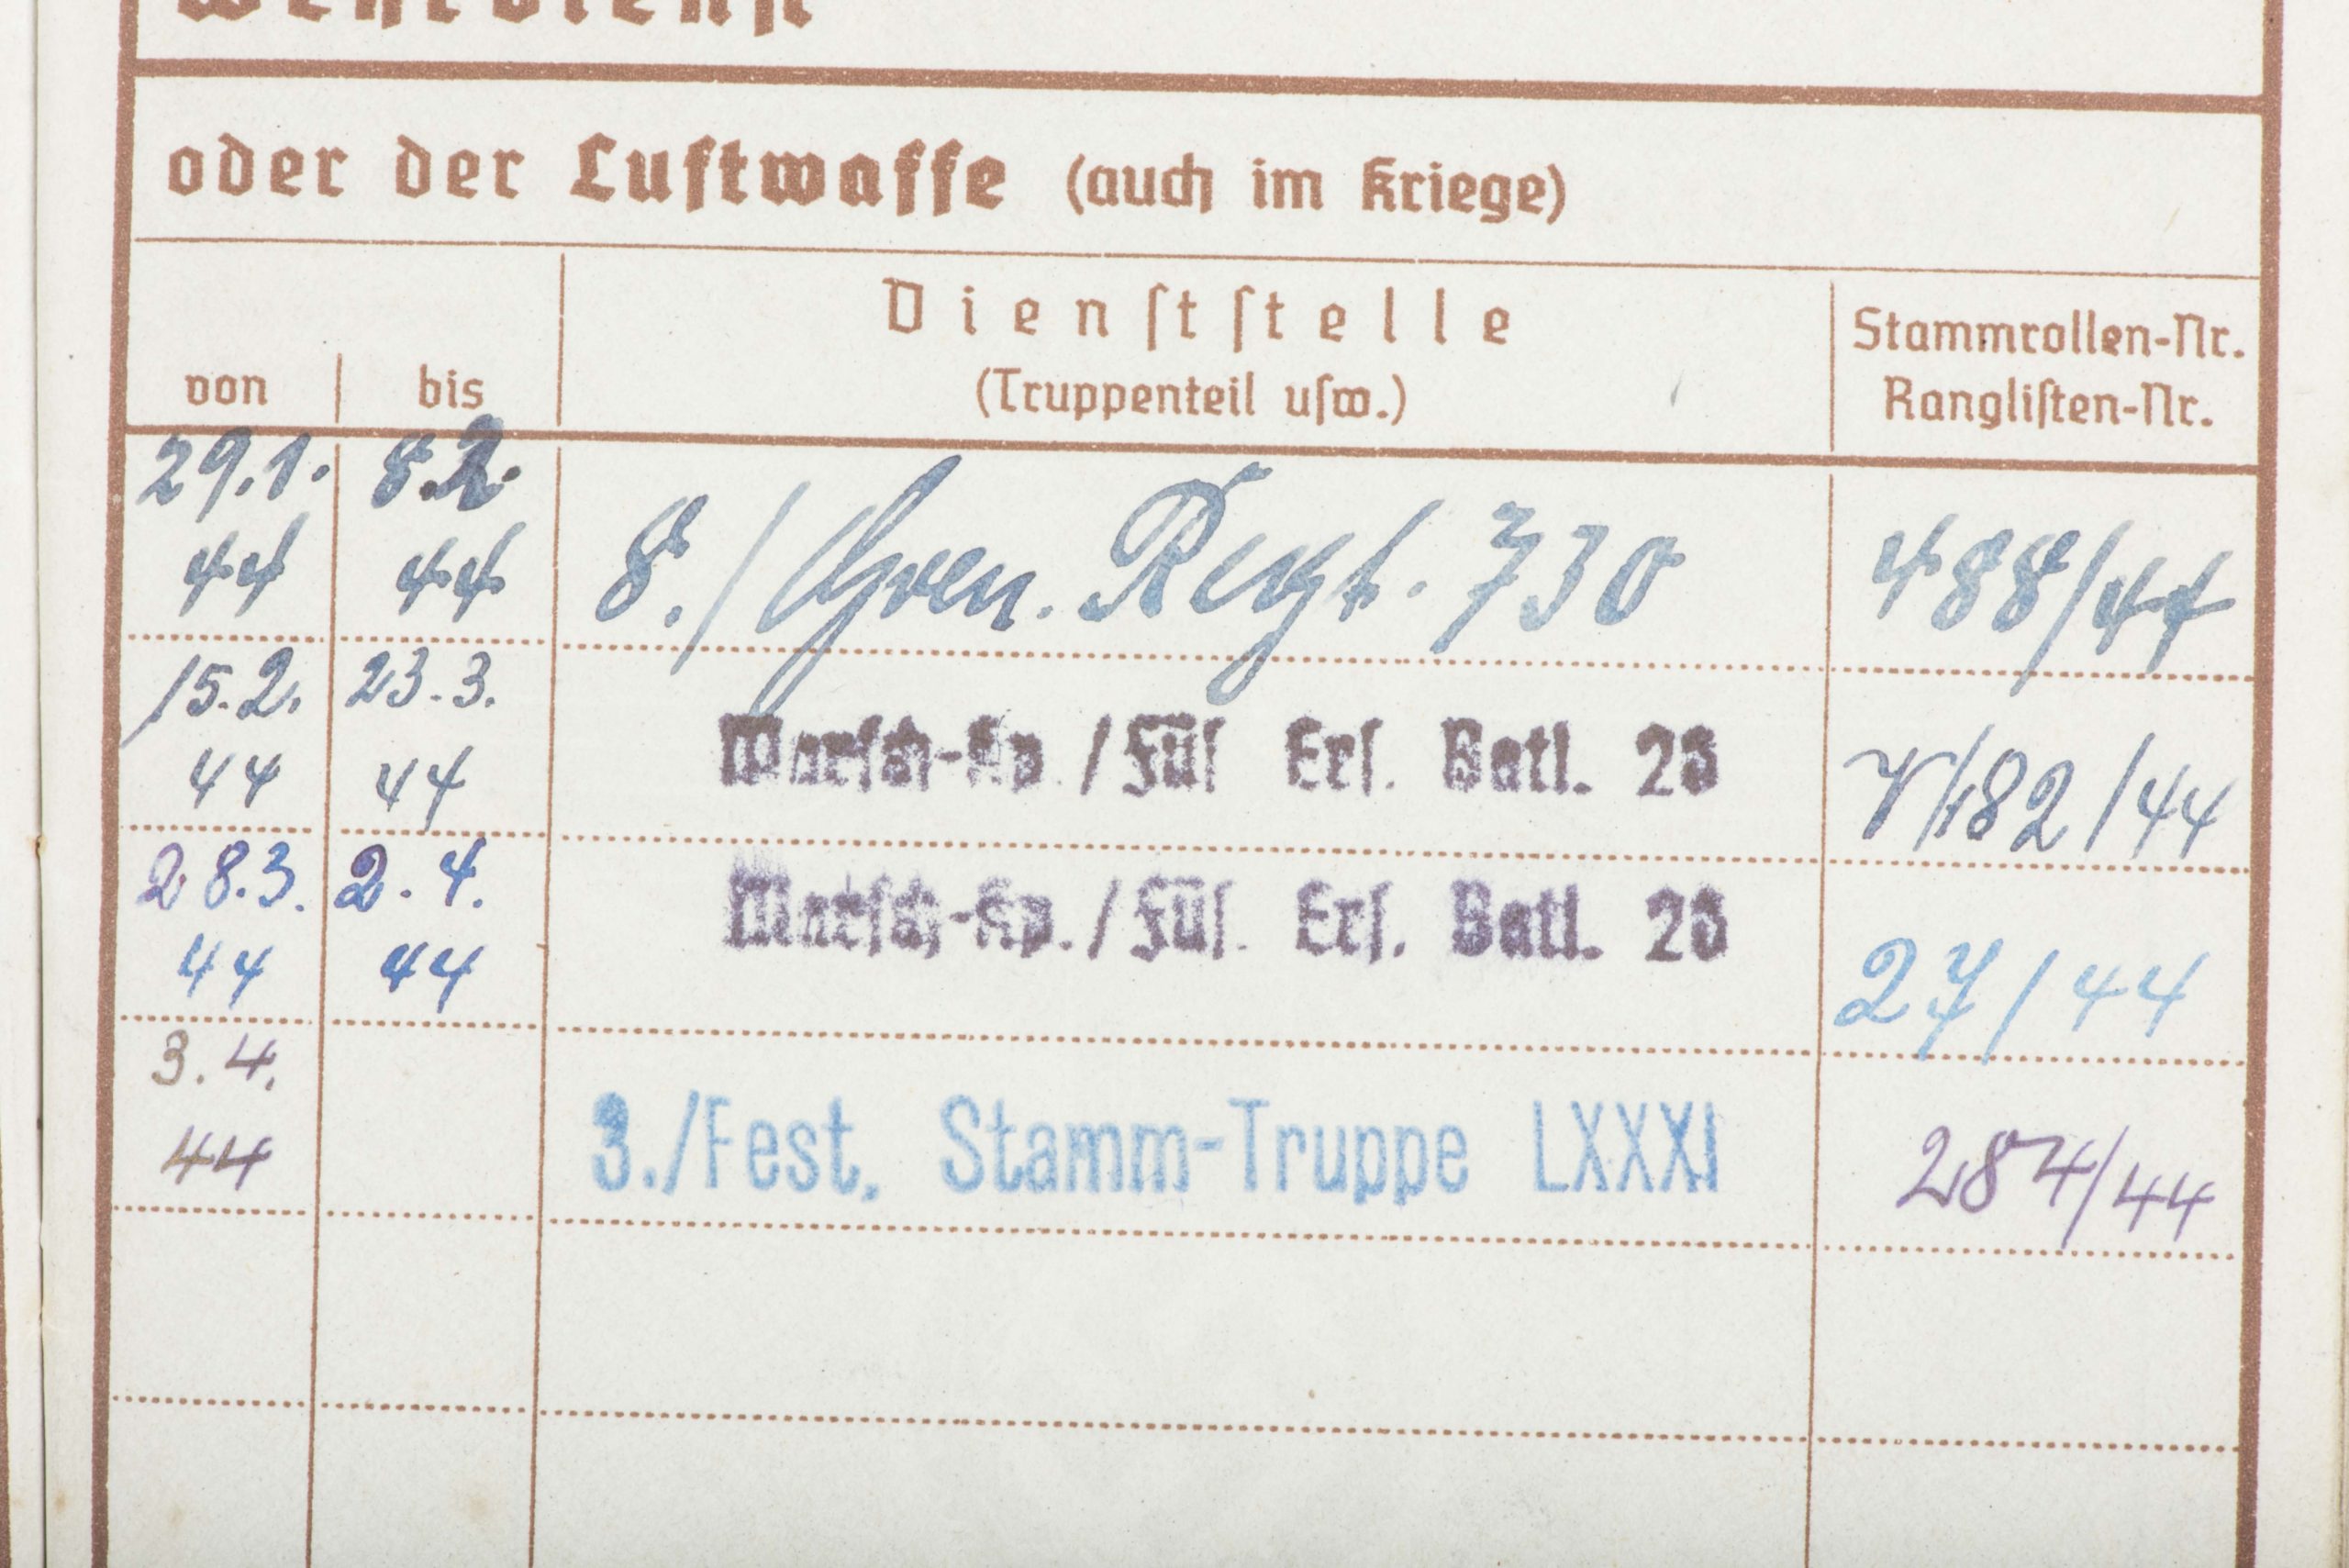 Wehrdienst
oder der Luftwaffe (auch im Kriege)
von bis Dienststelle Stammrollen-Nr.
(Truppenteil usw.) Ranglisten-Nr.
29.1. 8.2.
44 44 8./Gren. Regt. 730 488/44
15.2. 23.3.
44 44 Marsch-Kp./Füs Ers. Batl. 26 /182/44
28.3. 2.4.
44 44 Marsch-Kp./Füs. Ers. Batl. 26 27/44
3.4.
44 3./Fest. Stamm-Truppe LXXXI 287/44